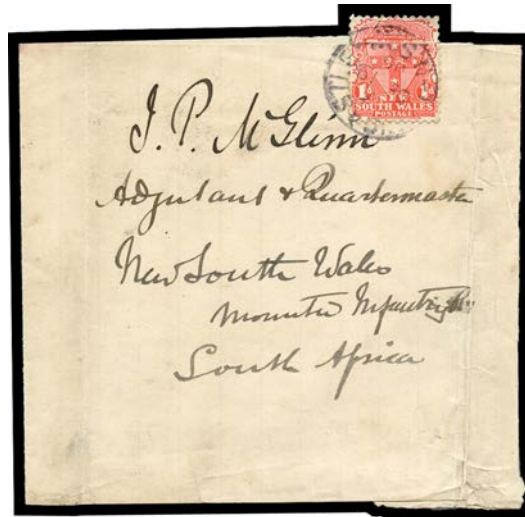 1d 1d
NEW
SOUTH WALES
POSTAGE
J. P. McGlinn
Adjutant & Quartermaster
New South Wales
Mounted Infantry
South Africa